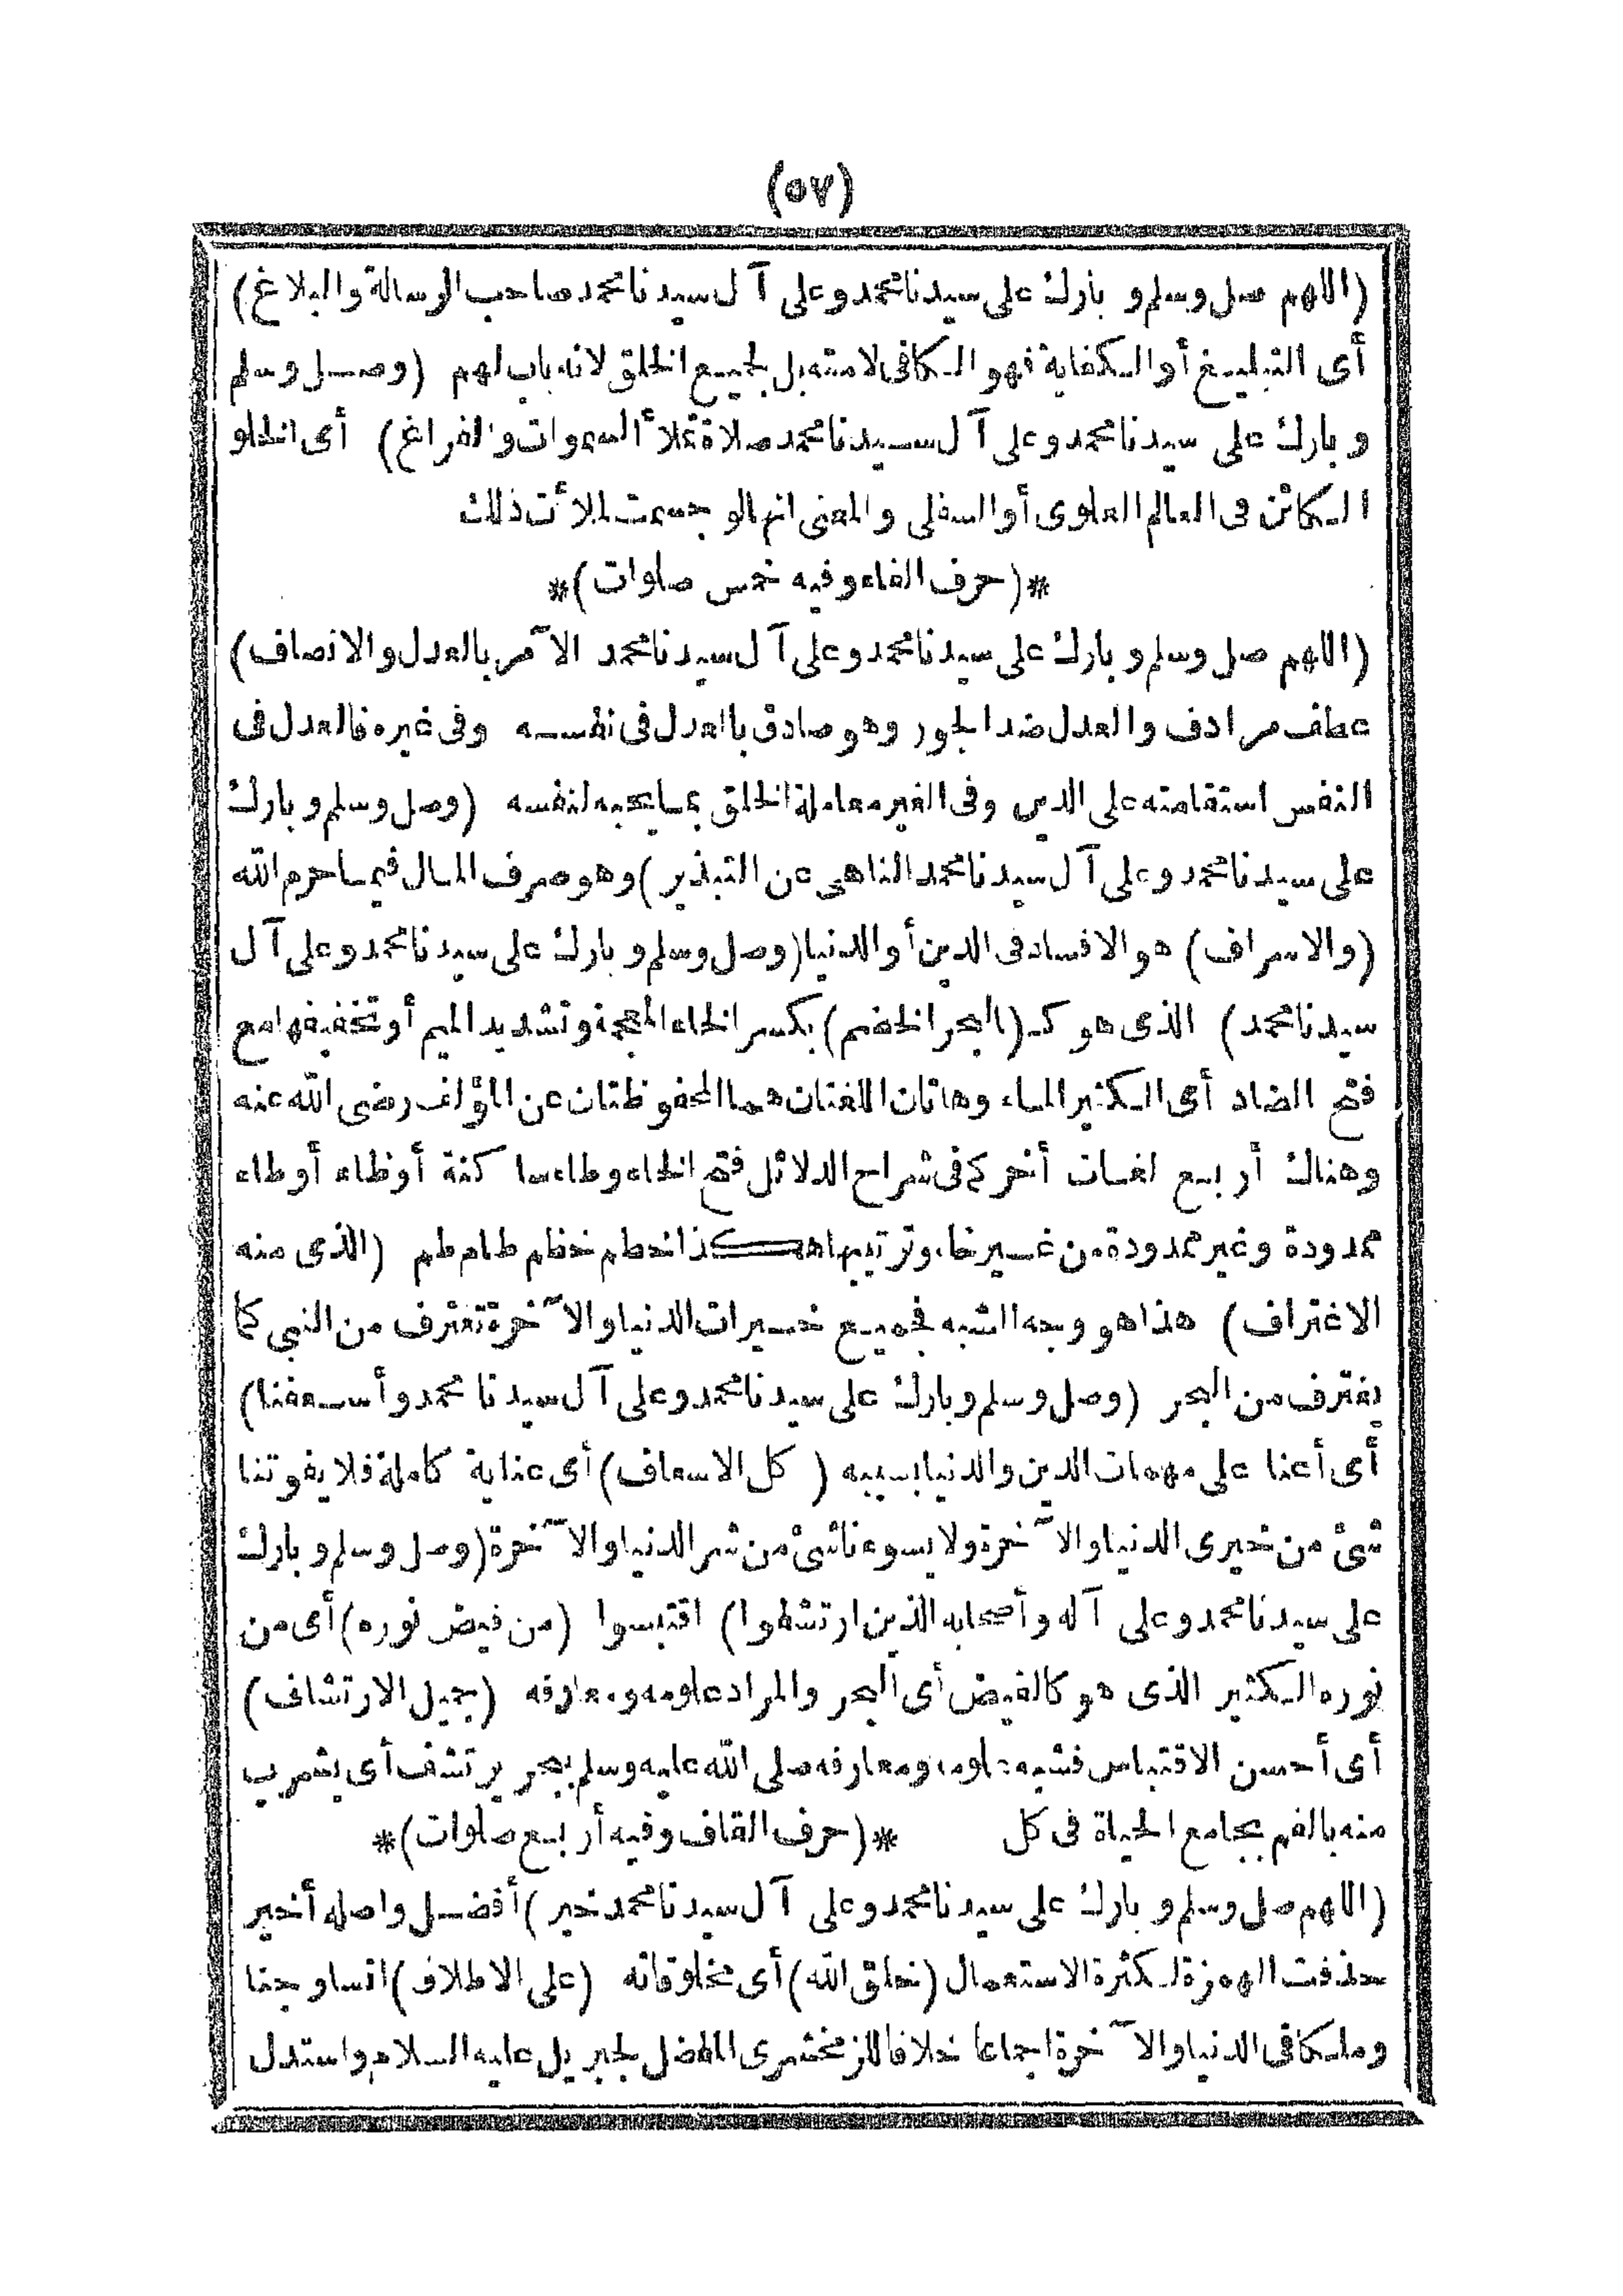 (٥٧)
(اللهم صل وسلم و بارك على سيدنا محمد وعلى آل سيدنا محمد صاحب الرسالة والبلاغ)
أى التبليغ أو الكفاية فهو الكافى لا متهبل لجميع الخلق لانه باب لهم (وصل وسلم
و بارك على سيدنا محمد وعلى آل سيدنا محمد صلاة تملأ السموات والفراغ) أى الخلو
الكائن فى العالم العلوى أو السفلى والمعنى انها لو جسمت لملأت ذلك
*(حرف الفاء وفيه خمس صلوات)*
(اللهم صل وسلم و بارك على سيدنا محمد وعلى آل سيدنا محمد الآمر بالعدل والانصاف)
عطف مرادف والعدل ضد الجور وهو صادق بالعدل فى نفسه وفى غيره فالعدل فى
النفس استقامته على الدين وفى الغير معاملة الخلق بما يحبه لنفسه (وصل وسلم و بارك
على سيدنا محمد وعلى آل سيدنا محمد الناهى عن التبذير) وهو صرف المال فيما حرم الله
(والاسراف) هو الافساد فى الدين أو الدنيا (وصل وسلم و بارك على سيدنا محمد وعلى آل
سيدنا محمد) الذى هو كـ(البحر الخضم) بكسر الخاء المعجمة وتشديد الميم أو تخفيفها مع
فتح الضاد أى الكثير الماء وهاتان اللغتان هما المحفوظتان عن المؤلف رضى الله عنه
وهناك أربع لغات أخر كما فى شراح الدلائل فتح الخاء وطاء ساكنة أو ظاء أو طاء
ممدودة وغير ممدودة من غير خاء وترتيبها هكذا خطم خظم طام طم (الذى منه
الاغتراف) هذا هو وجه الشبه فجميع خيرات الدنيا والآخرة تغترف من النبى كما
يغترف من البحر (وصل وسلم وبارك على سيدنا محمد وعلى آل سيدنا محمد وأسعفنا)
أى أعنا على مهمات الدين والدنيا بسببه (كل الاسعاف) أى عناية كاملة فلا يفوتنا
شئ من خيرى الدنيا والآخرة ولا يسوءنا شئ من شر الدنيا والآخرة (وصل وسلم و بارك
على سيدنا محمد وعلى آله وأصحابه الذين ارتشفوا) اقتبسوا (من فيض نوره) أى من
نوره الكثير الذى هو كالفيض أى البحر والمراد علومه ومعارفه (جميل الارتشاف)
أى أحسن الاقتباس فشبه علومه ومعارفه صلى الله عليه وسلم ببحر يرتشف أى يشرب
منه بالفم بجامع الحياة فى كل *(حرف القاف وفيه أربع صلوات)*
(اللهم صل وسلم و بارك على سيدنا محمد وعلى آل سيدنا محمد خير) أفضل واصله أخير
حذفت الهمزة لكثرة الاستعمال (خلق الله) أى مخلوقاته (على الاطلاق) انسا وجنا
وملكا فى الدنيا والآخرة اجماعا خلافا للزمخشرى المفضل لجبريل عليه السلام واستدل